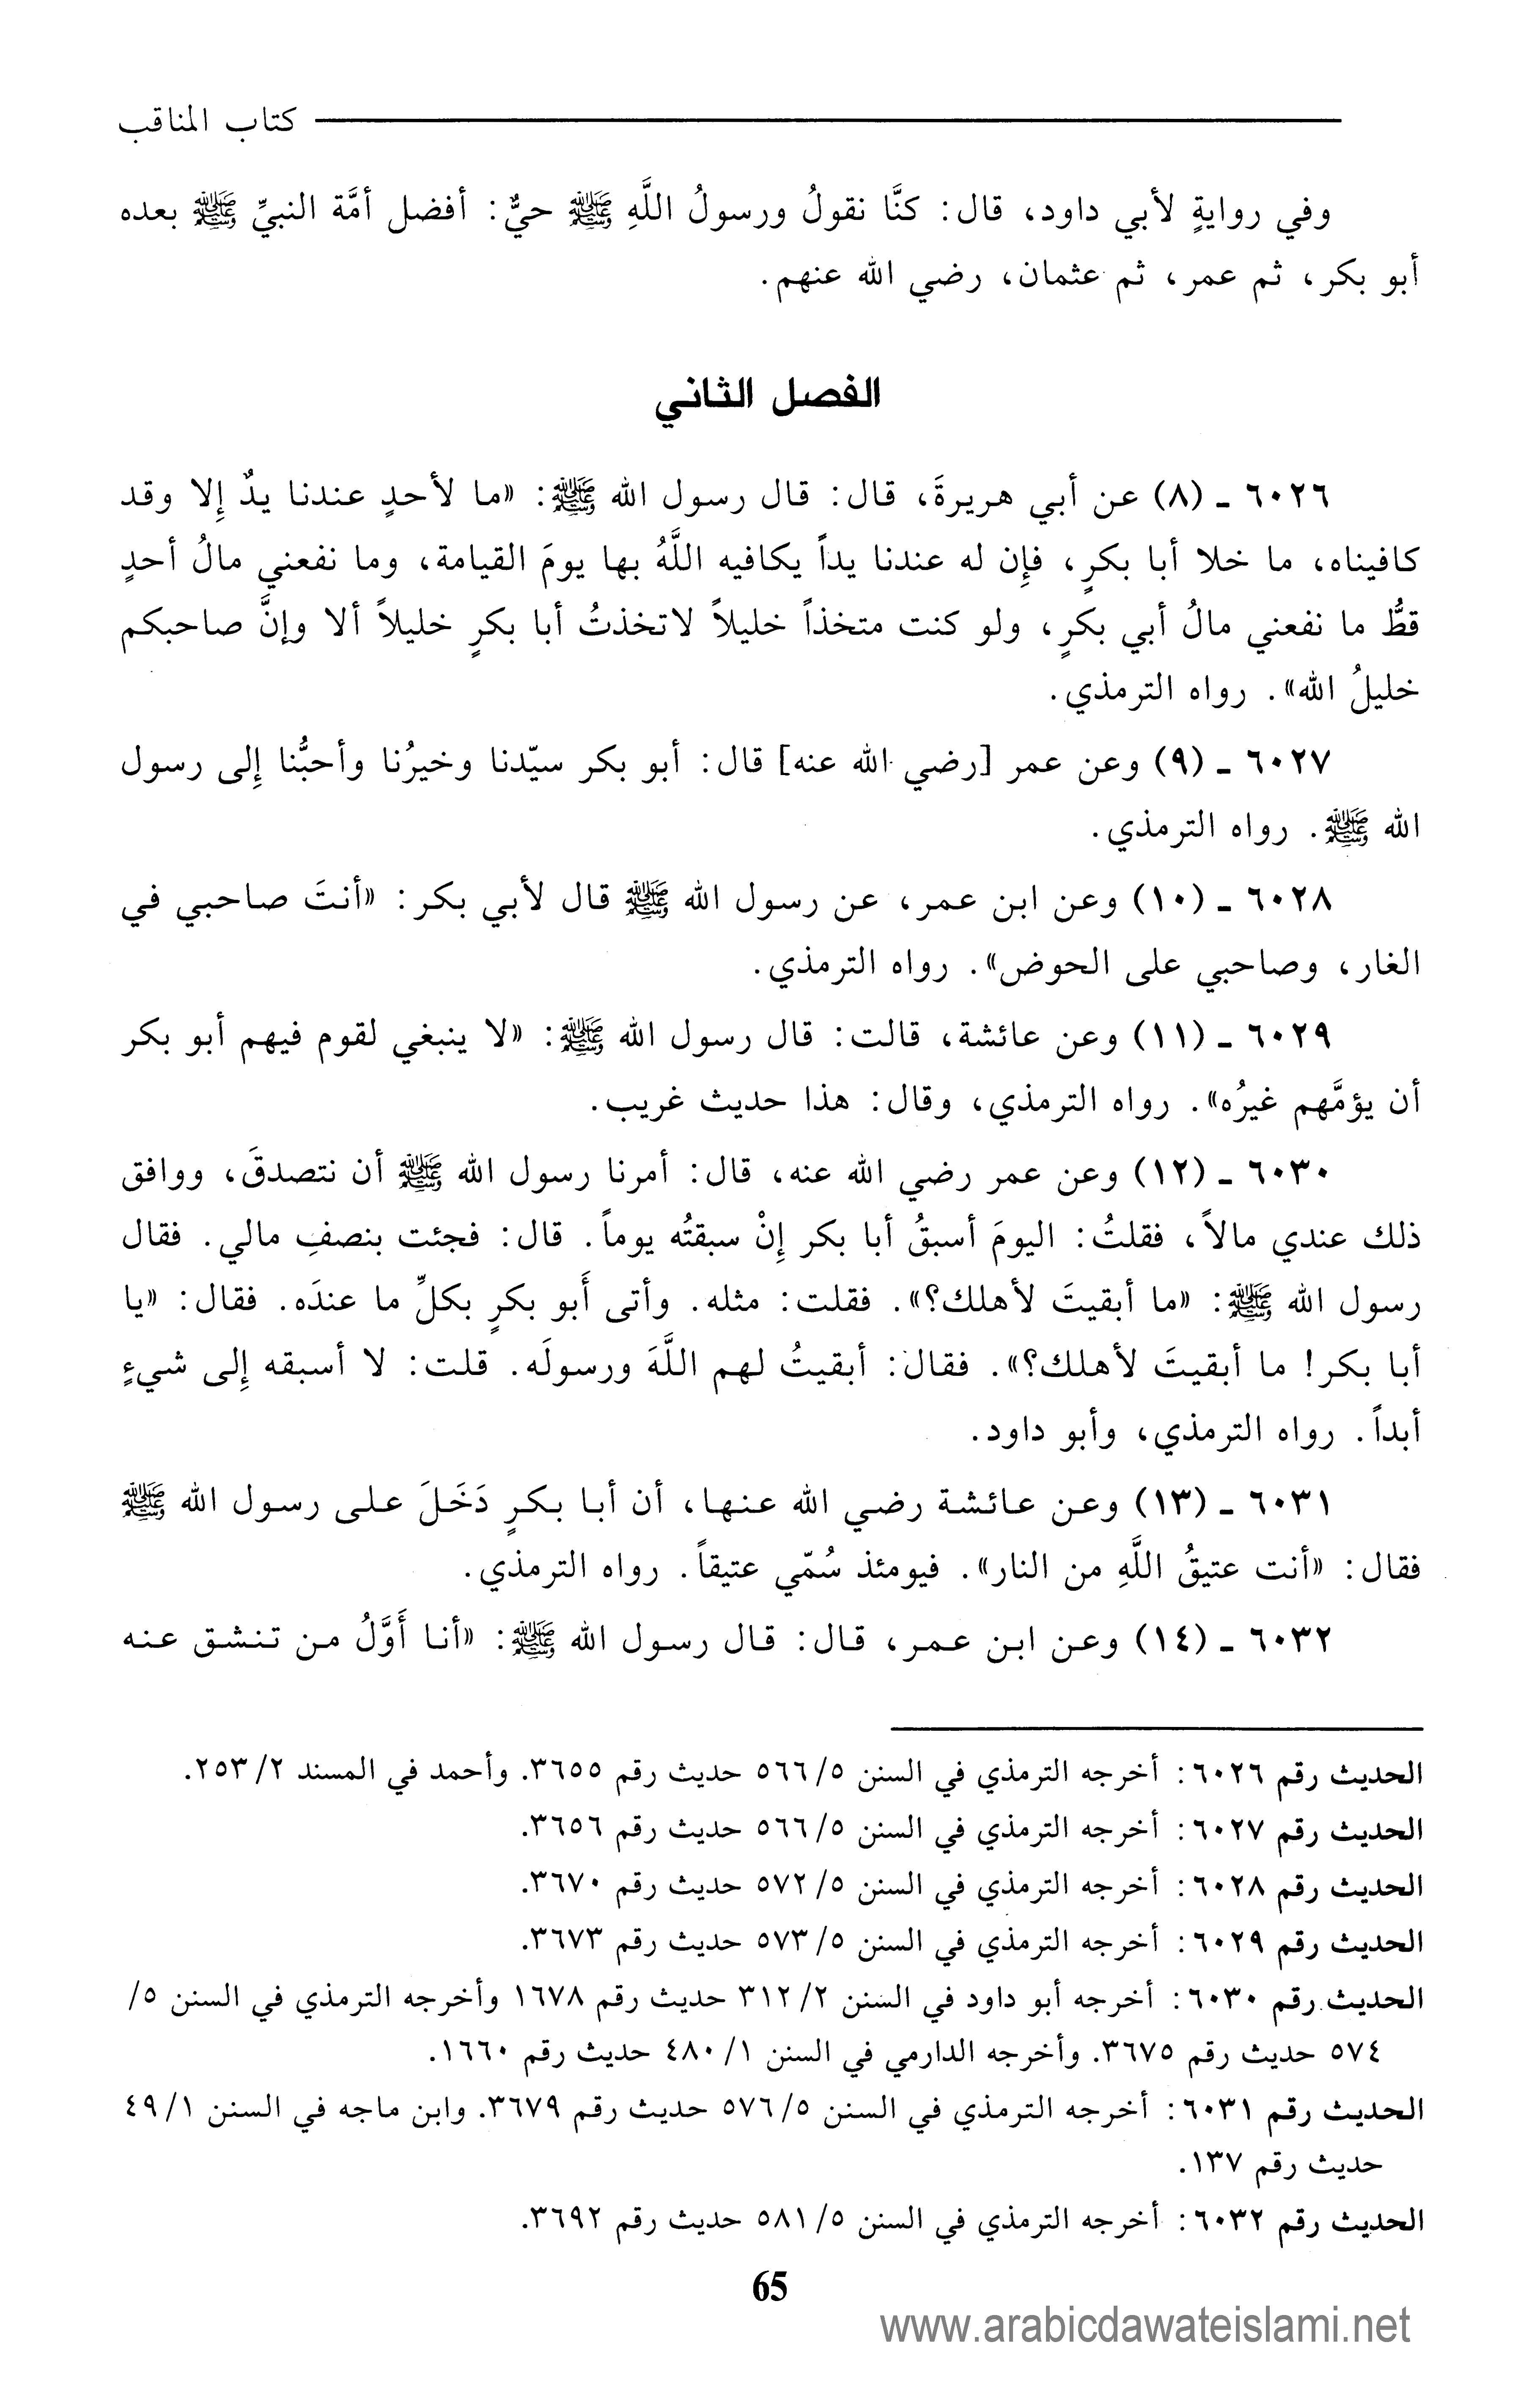 كتاب المناقب
وفي روايةٍ لأبي داود، قال: كنَّا نقولُ ورسولُ اللَّهِ ﷺ حيٌّ: أفضل أمَّة النبيِّ ﷺ بعده
أبو بكر، ثم عمر، ثم عثمان، رضي الله عنهم.
الفصل الثاني
٦٠٢٦ ـ (٨) عن أبي هريرةَ، قال: قال رسول الله ﷺ: «ما لأحدٍ عندنا يدٌ إِلا وقد
كافيناه، ما خلا أبا بكرٍ، فإِن له عندنا يداً يكافيه اللَّهُ بها يومَ القيامة، وما نفعني مالُ أحدٍ
قطُّ ما نفعني مالُ أبي بكرٍ، ولو كنت متخذاً خليلاً لاتخذتُ أبا بكرٍ خليلاً ألا وإنَّ صاحبكم
خليلُ الله». رواه الترمذي.
٦٠٢٧ ـ (٩) وعن عمر [رضي الله عنه] قال: أبو بكر سيّدنا وخيرُنا وأحبُّنا إِلى رسول
الله ﷺ. رواه الترمذي.
٦٠٢٨ ـ (١٠) وعن ابن عمر، عن رسول الله ﷺ قال لأبي بكر: «أنتَ صاحبي في
الغار، وصاحبي على الحوض». رواه الترمذي.
٦٠٢٩ ـ (١١) وعن عائشة، قالت: قال رسول الله ﷺ: «لا ينبغي لقوم فيهم أبو بكر
أن يؤمَّهم غيرُه». رواه الترمذي، وقال: هذا حديث غريب.
٦٠٣٠ ـ (١٢) وعن عمر رضي الله عنه، قال: أمرنا رسول الله ﷺ أن نتصدقَ، ووافق
ذلك عندي مالاً، فقلتُ: اليومَ أسبقُ أبا بكر إِنْ سبقتُه يوماً. قال: فجئت بنصفِ مالي. فقال
رسول الله ﷺ: «ما أبقيتَ لأهلك؟». فقلت: مثله. وأتى أَبو بكرٍ بكلِّ ما عندَه. فقال: «يا
أبا بكر! ما أبقيتَ لأهلك؟». فقال: أبقيتُ لهم اللَّهَ ورسولَه. قلت: لا أسبقه إِلى شيءٍ
أبداً. رواه الترمذي، وأبو داود.
٦٠٣١ ـ (١٣) وعن عائشة رضي الله عنها، أن أبا بكرٍ دَخَلَ على رسول الله ﷺ
فقال: «أنت عتيقُ اللَّهِ من النار». فيومئذ سُمّي عتيقاً. رواه الترمذي.
٦٠٣٢ ـ (١٤) وعن ابن عمر، قال: قال رسول الله ﷺ: «أنا أَوَّلُ من تنشق عنه
الحديث رقم ٦٠٢٦: أخرجه الترمذي في السنن ٥/ ٥٦٦ حديث رقم ٣٦٥٥. وأحمد في المسند ٢/ ٢٥٣.
الحديث رقم ٦٠٢٧: أخرجه الترمذي في السنن ٥/ ٥٦٦ حديث رقم ٣٦٥٦.
الحديث رقم ٦٠٢٨: أخرجه الترمذي في السنن ٥/ ٥٧٢ حديث رقم ٣٦٧٠.
الحديث رقم ٦٠٢٩: أخرجه الترمذي في السنن ٥/ ٥٧٣ حديث رقم ٣٦٧٣.
الحديث رقم ٦٠٣٠: أخرجه أبو داود في السنن ٢/ ٣١٢ حديث رقم ١٦٧٨ وأخرجه الترمذي في السنن ٥/
٥٧٤ حديث رقم ٣٦٧٥. وأخرجه الدارمي في السنن ١/ ٤٨٠ حديث رقم ١٦٦٠.
الحديث رقم ٦٠٣١: أخرجه الترمذي في السنن ٥/ ٥٧٦ حديث رقم ٣٦٧٩. وابن ماجه في السنن ١/ ٤٩
حديث رقم ١٣٧.
الحديث رقم ٦٠٣٢: أخرجه الترمذي في السنن ٥/ ٥٨١ حديث رقم ٣٦٩٢.
65
www.arabicdawateislami.net